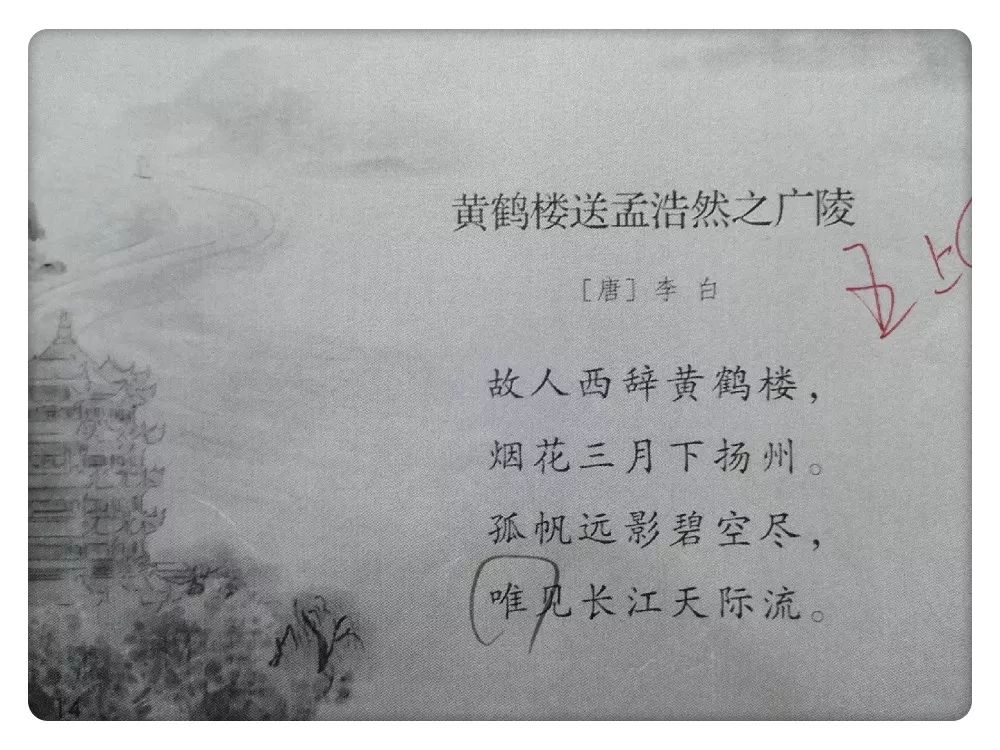 黄鹤楼送孟浩然之广陵
[唐] 李 白
五上
故人西辞黄鹤楼，
烟花三月下扬州。
孤帆远影碧空尽，
唯见长江天际流。
14